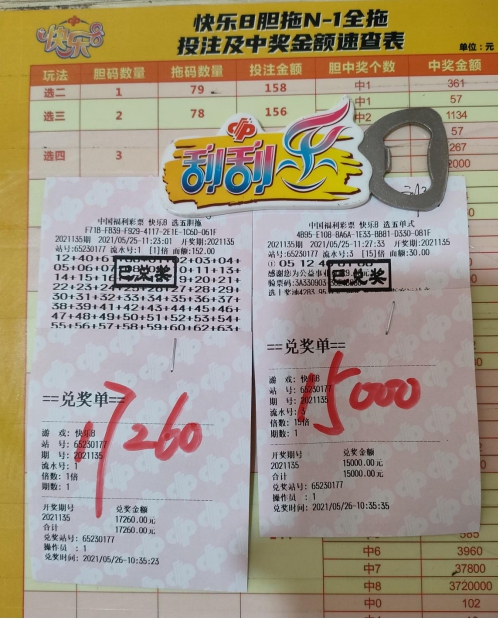 快乐8胆拖N-1全拖
投注及中奖金额速查表
快乐8
单位:元
玩法 胆码数量 拖码数量 投注金额 胆中个数 中奖金额
选二 1 79 158 中1 361
57
选三 2 78 156 中2 1134
57
选四 3 267
2000
刮刮乐
中国福利彩票 快乐8 选五胆拖
F71B-FB39-F929-4117-2E1E-1C6D-061F
2021135期 2021/05/25-11:23:01 开奖期:2021135
站号:65230177 流水号:1 [1]倍 面额:152.00
12+40+6
05+06+07
14+15+16
22+23+24
30+31+32+33+34+35+36+37
38+39+41+42+43+44+45+46
47+48+49+50+51+52+53+54+
55+56+57+58+59+60+62+63
已兑奖
==兑奖单==
17260
游 戏: 快乐8
站 号: 65230177
期 号: 2021135
流水号: 1
倍数: 1倍
期数: 1
开奖期号 兑奖金额
2021135 17260.00元
合计 17260.00元
兑奖站号:65230177
操作员 : 1
兑奖时间: 2021/05/26-10:35:23
中国福利彩票 快乐8 选五单式
2021135期 2021/05/25-11:27:33 开奖期:2021135
站号:65230177 流水号:3 [15]倍 面额:30.00
感谢您为公益事
已兑奖
==兑奖单==
15000
游 戏: 快乐8
站 号: 65230177
期 号: 2021135
流水号: 3
倍数: 15倍
期数: 1
开奖期号 兑奖金额
2021135 15000.00元
合计 15000.00元
兑奖站号:65230177
操作员 : 1
兑奖时间: 2021/05/26-10:35:35
585
中6 3960
中7 37800
中8 3720000
中0 102